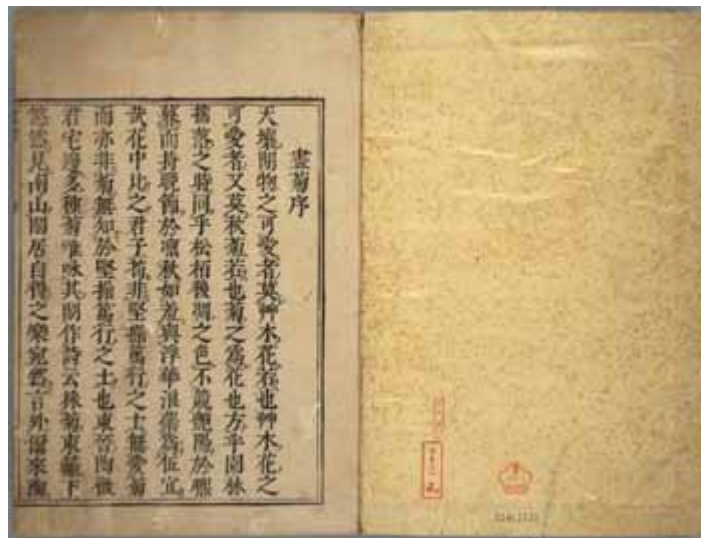 畫菊序
天壤間物之可愛者莫艸木花若也艸木花之
可愛者又莫秋菊若也菊之爲花也方乎園林
搖落之時同乎松栢後凋之色不競艷陽於
而持晩節於凜秋如羞與浮華浪蘂爲伍宜
哉花中比之君子苟非堅操篤行之士無愛菊
而亦非菊無知於堅操篤行之士也東晉陶徴
君宅邊多種菊唯咏其間作詩云採菊東籬下
悠然見南山閒居自得之樂宛然言外爾來